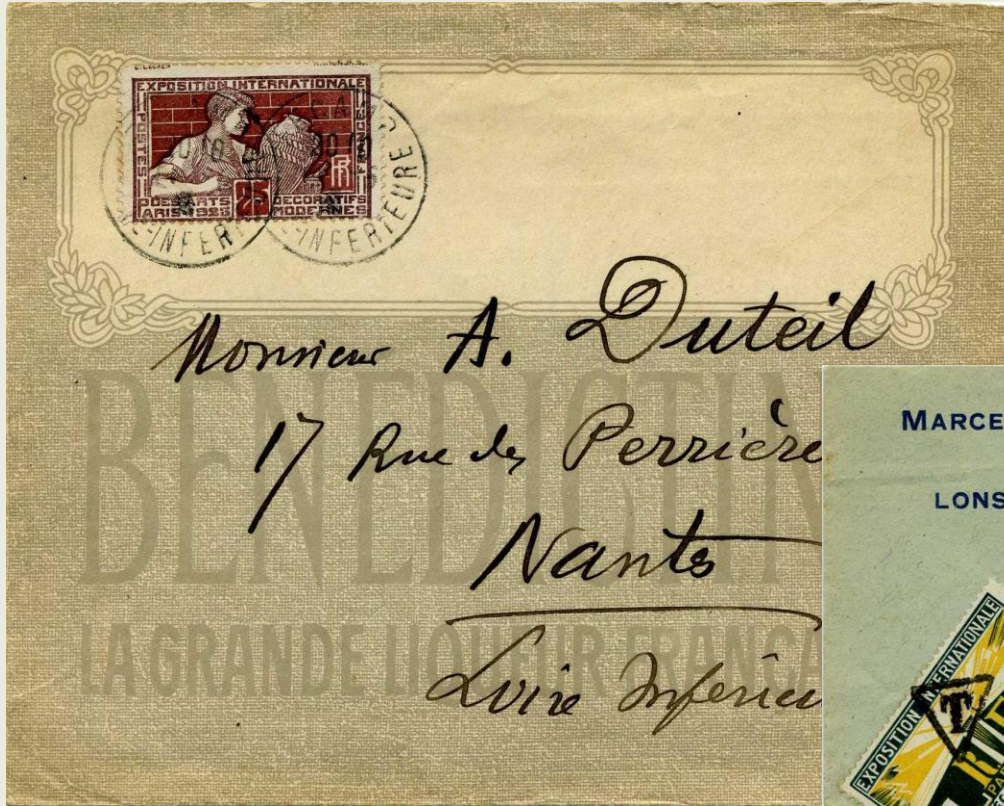 EXPOSITION INTERNATIONALE
POSTES
RF
25
DES ARTS DECORATIFS
PARIS 1925 MODERNES
INFERIEURE
Monsieur A. Duteil
17 Rue des Perrière
Nantes
Loire Inférieu
BENEDICTIN
LA GRANDE LIQUEUR FRANÇA
MARCE
LONS
EXPOSITION INTERNATIONALE
T